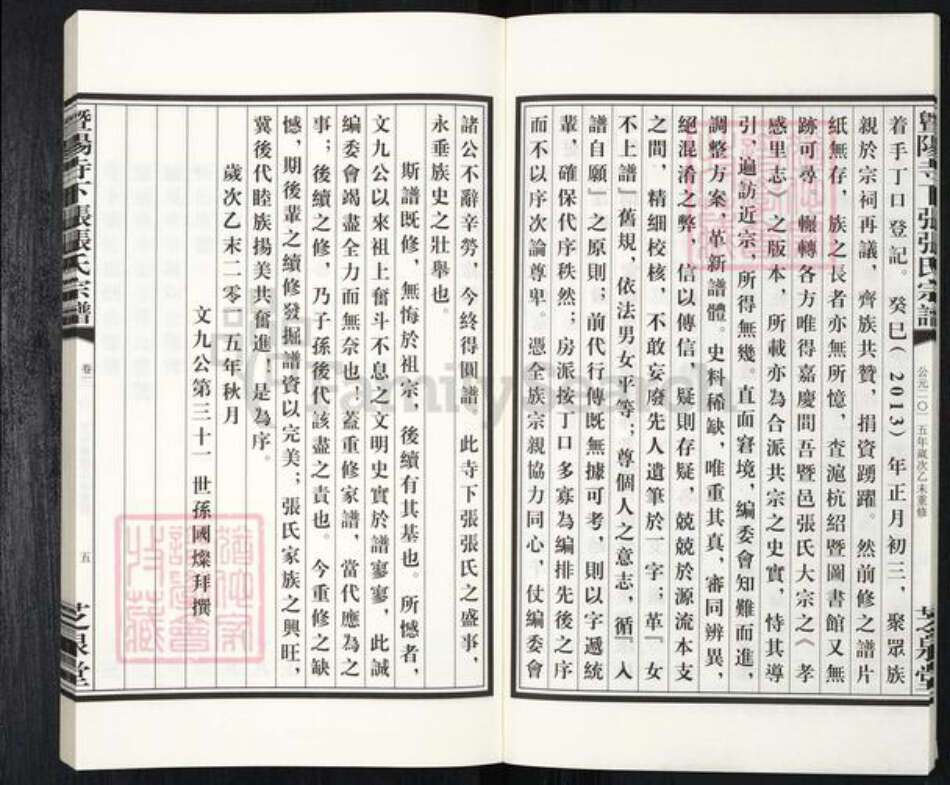 暨陽寺下張張氏宗譜
公元二〇一五年歲次乙未重修
芝泉堂
着手丁口登記。癸巳(2013)年正月初三,聚眾族
親於宗祠再議,齊族共贊,捐資踴躍。然前修之譜片
紙無存,族之長者亦無所憶,查滬杭紹暨圖書館又無
跡可尋,輾轉各方唯得嘉慶間吾暨邑張氏大宗之《孝
感里志》之版本,所載亦為合派共宗之史實,恃其導
引,遍訪近宗,所得無幾。直面窘境,編委會知難而進,
調整方案,革新譜體。史料稀缺,唯重其真,審同辨異,
絕混淆之弊,信以傳信,疑則存疑,兢兢於源流本支
之間,精細校核,不敢妄廢先人遺筆於一字;革『女
不上譜』舊規,依法男女平等;尊個人之意志,循『入
譜自願』之原則;前代行傳既無據可考,則以字遞統
輩,確保代序秩然;房派按丁口多寡為編排先後之序
而不以序次論尊卑。憑全族宗親協力同心,仗編委會
諸公不辭辛勞,今終得圓譜,此寺下張張氏之盛事,
永垂族史之壯舉也。
斯譜既修,無悔於祖宗,後續有其基也。所憾者,
文九公以來祖上奮斗不息之文明史實於譜寥寥,此誠
編委會竭盡全力而無奈也,蓋重修家譜,當代應為之
事;後續之修,乃子孫後代該盡之責也。今重修之缺
憾,期後輩之續修發掘譜資以完美;張氏家族之興旺,
冀後代睦族揚美共奮進!是為序。
歲次乙未二零一五年秋月
文九公第三十一世孫國燦拜撰
暨陽寺下張張氏宗譜
卷一
五
芝泉堂
FamilySearch